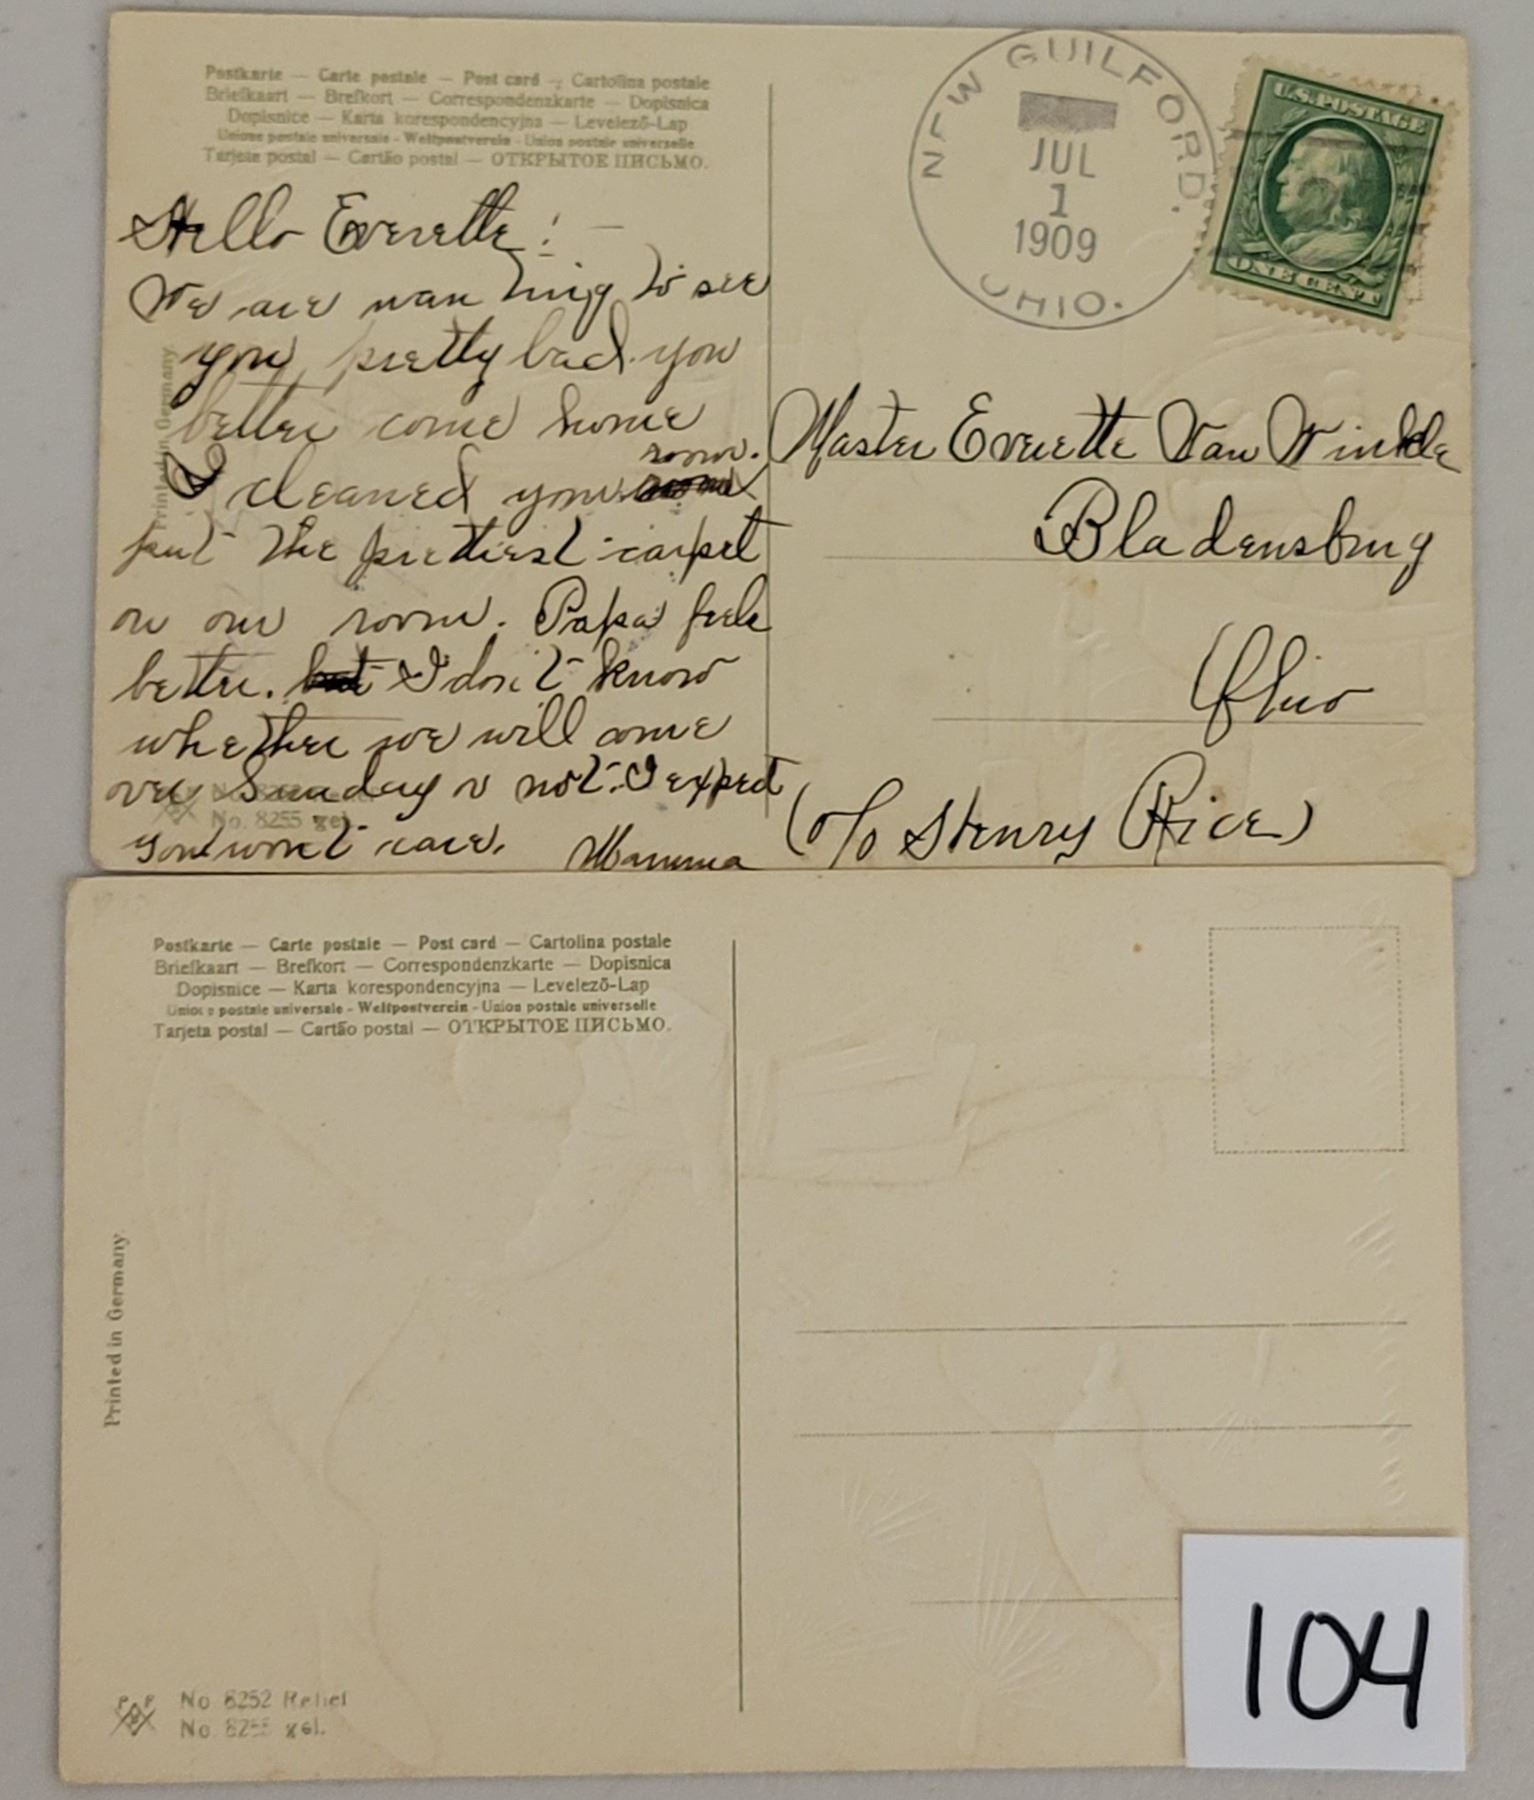 Postkarte — Carte postale — Post card — Cartolina postale
Briefkaart — Brefkort — Correspondenzkarte — Dopisnica
Dopisnice — Karta korespondencyjna — Levelező-Lap
Unione postale universale - Weltpostverein - Union postale universelle
Tarjeta postal — Cartão postal — ОТКРЫТОЕ ПИСЬМО.
Hello Everette! —
We are wanting to see
you pretty bad. you
better come home
I cleaned your room.
put the prettiest carpet
on our room. Papa feels
better. but I don't know
whether we will come
over Sunday or not. I expect
you won't care. Mamma
Printed in Germany.
No. 8255 gel.
NEW GUILFORD.
JUL
1
1909
OHIO.
U.S. POSTAGE
ONE CENT
Master Everette Van Winkle
Bladensburg
Ohio
(c/o Henry Rice)
Postkarte — Carte postale — Post card — Cartolina postale
Briefkaart — Brefkort — Correspondenzkarte — Dopisnica
Dopisnice — Karta korespondencyjna — Levelező-Lap
Unione postale universale - Weltpostverein - Union postale universelle
Tarjeta postal — Cartão postal — ОТКРЫТОЕ ПИСЬМО.
Printed in Germany.
P F B
No 8252 Relief
No. 8255 gel.
104